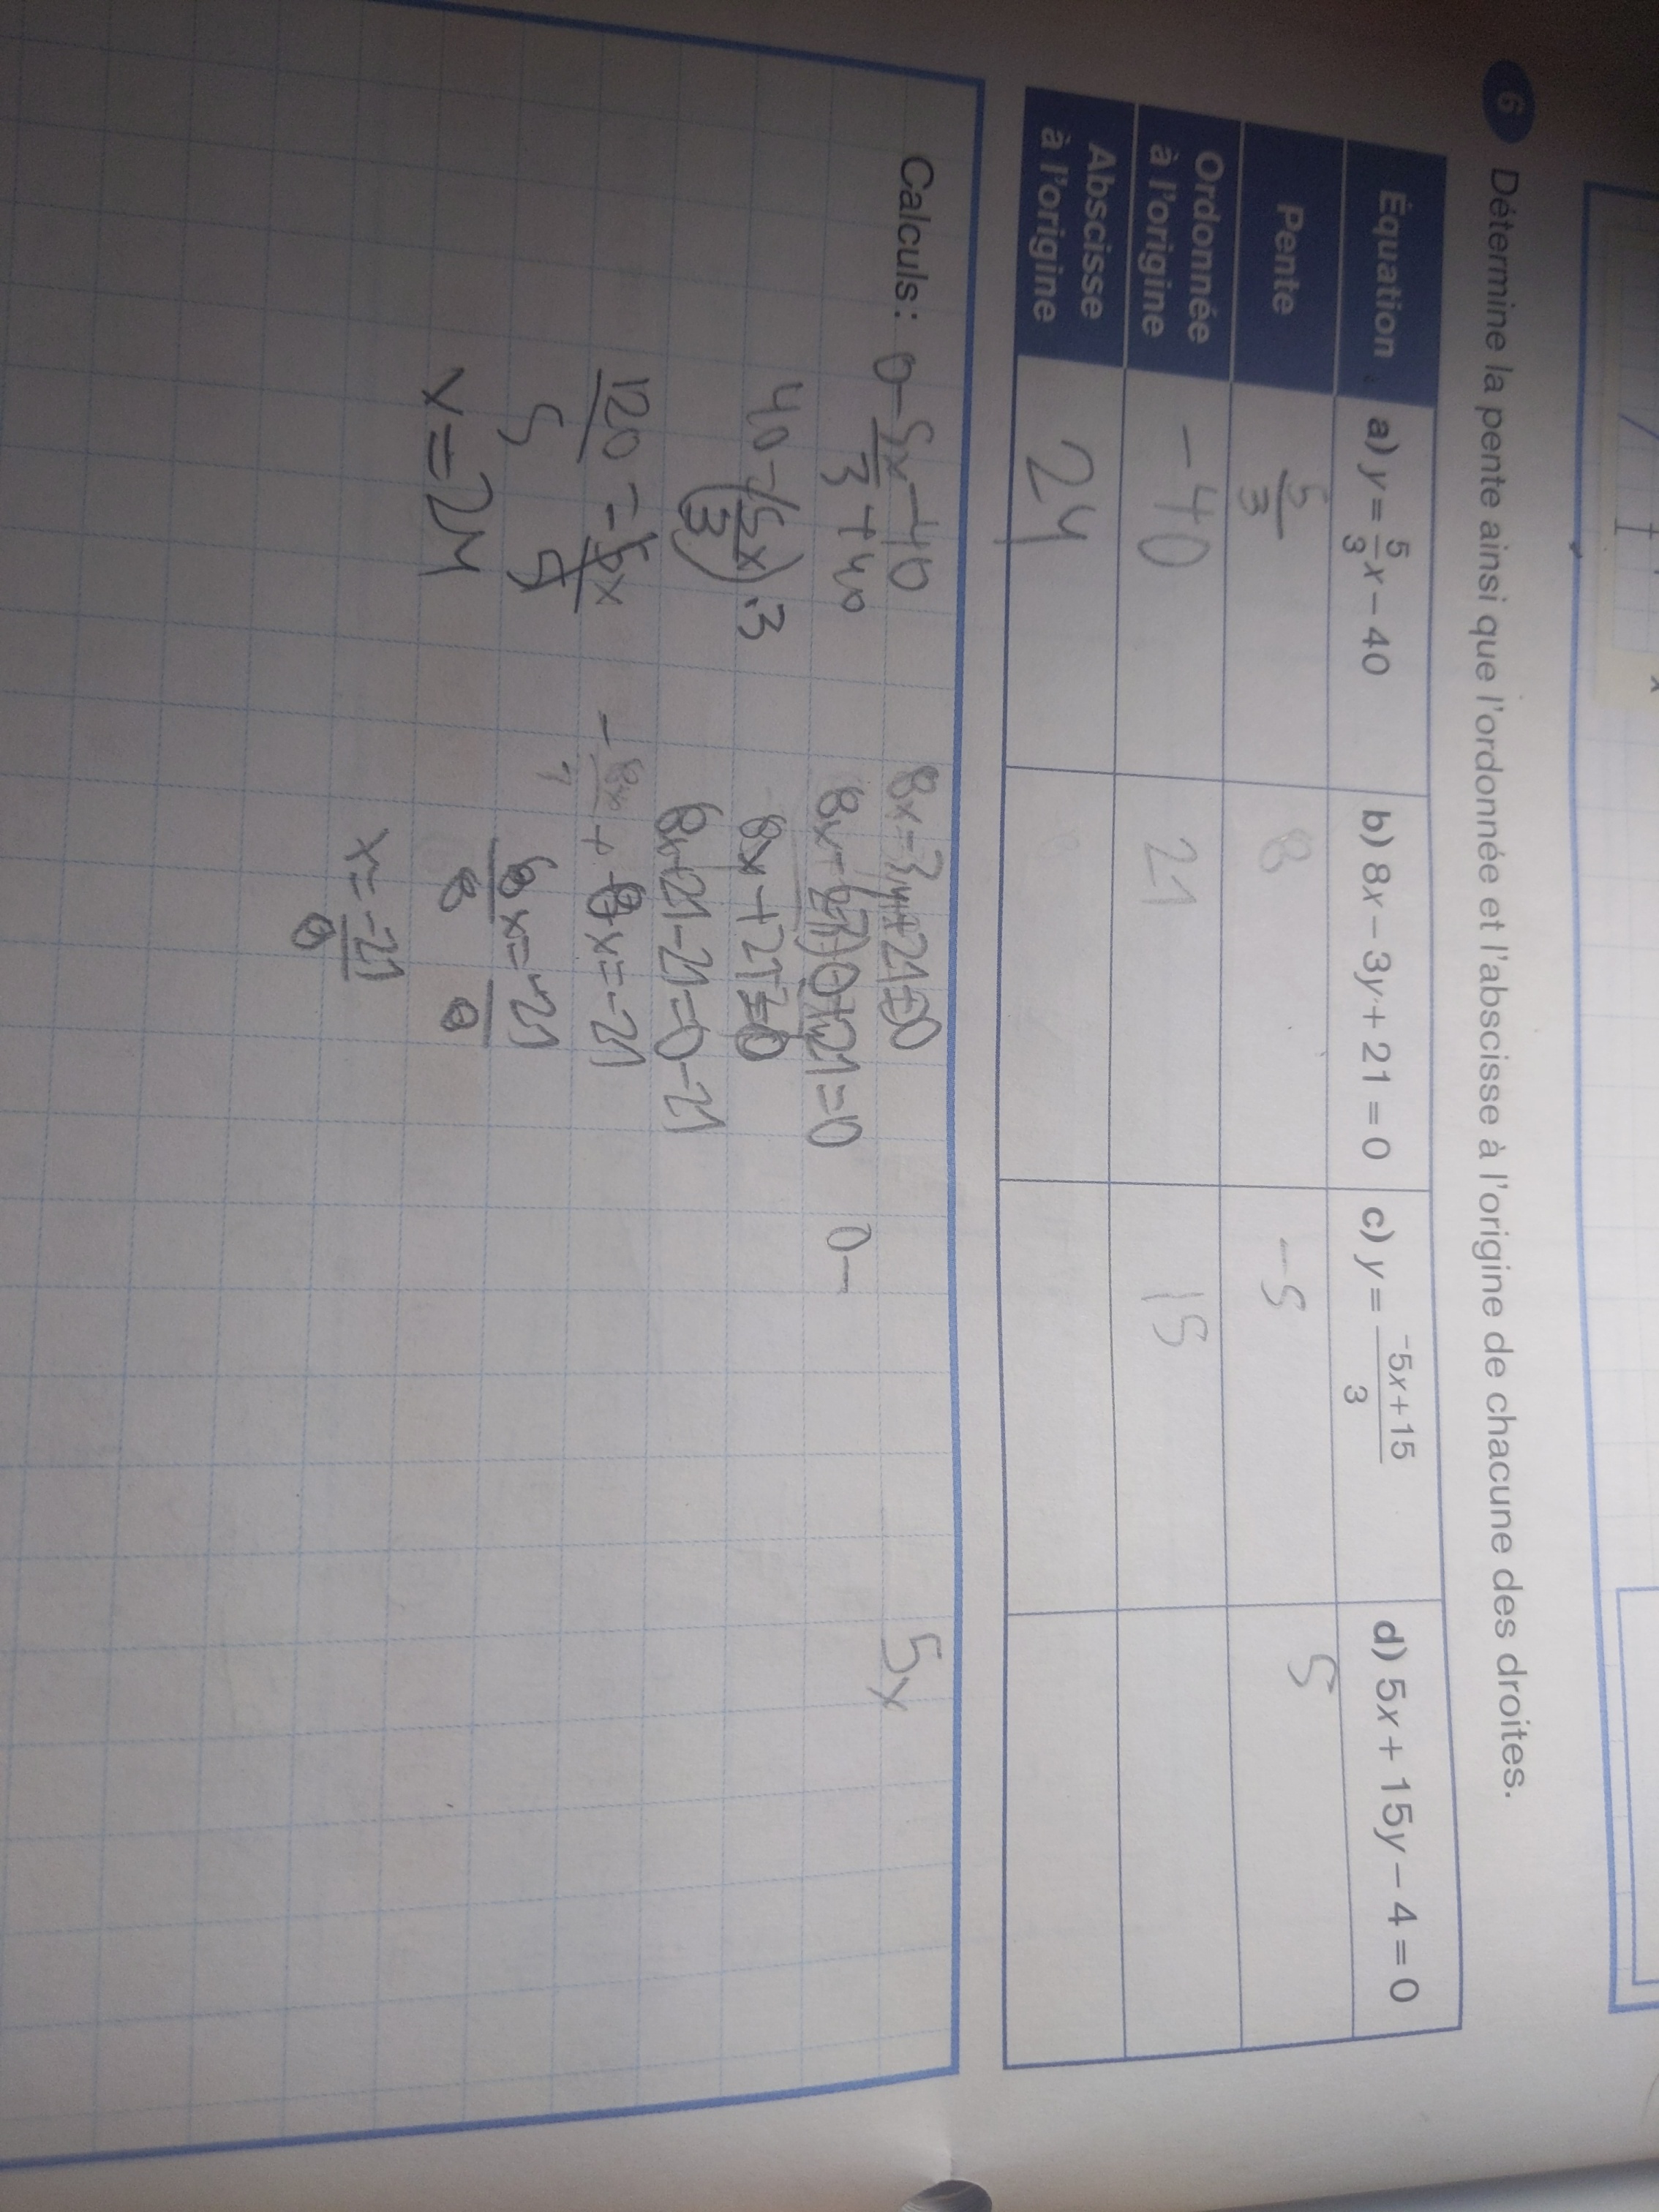 6 Détermine la pente ainsi que l'ordonnée et l'abscisse à l'origine de chacune des droites.
Équation a) y = 5/3 x – 40 b) 8x – 3y + 21 = 0 c) y = ⁻5x + 15 / 3 d) 5x + 15y – 4 = 0
Pente 5/3 8 -5 5
Ordonnée à l'origine -40 21 15
Abscisse à l'origine 24
Calculs :
0 - 5x/3 - 40
+ 40
40 - (5x/3) · 3
120/5 = 5x/5
x = 24
8x - 3y + 21 = 0
8x + 21 = 0
8x + 21 - 21 = 0 - 21
8x = -21
x = -21/8
0 -
5x